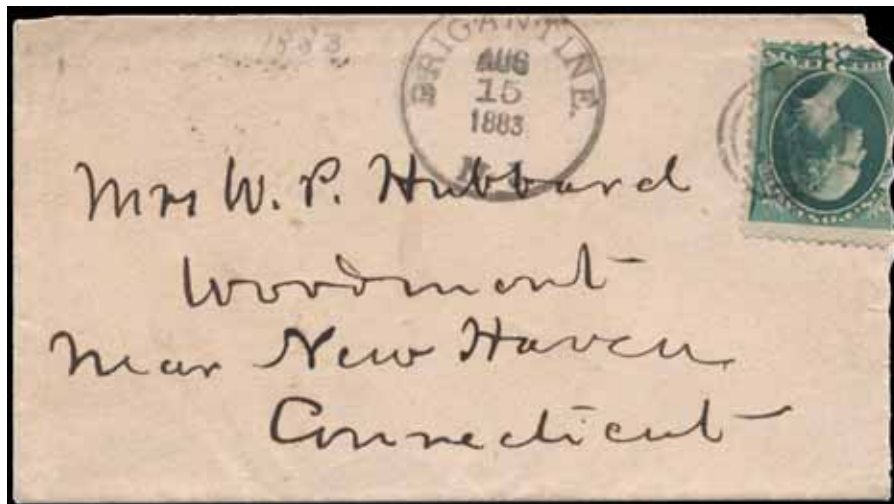 BRIGANTINE.
AUG
15
1883
N.J.
Mrs W. P. Hubbard
Woodmont
Near New Haven
Connecticut